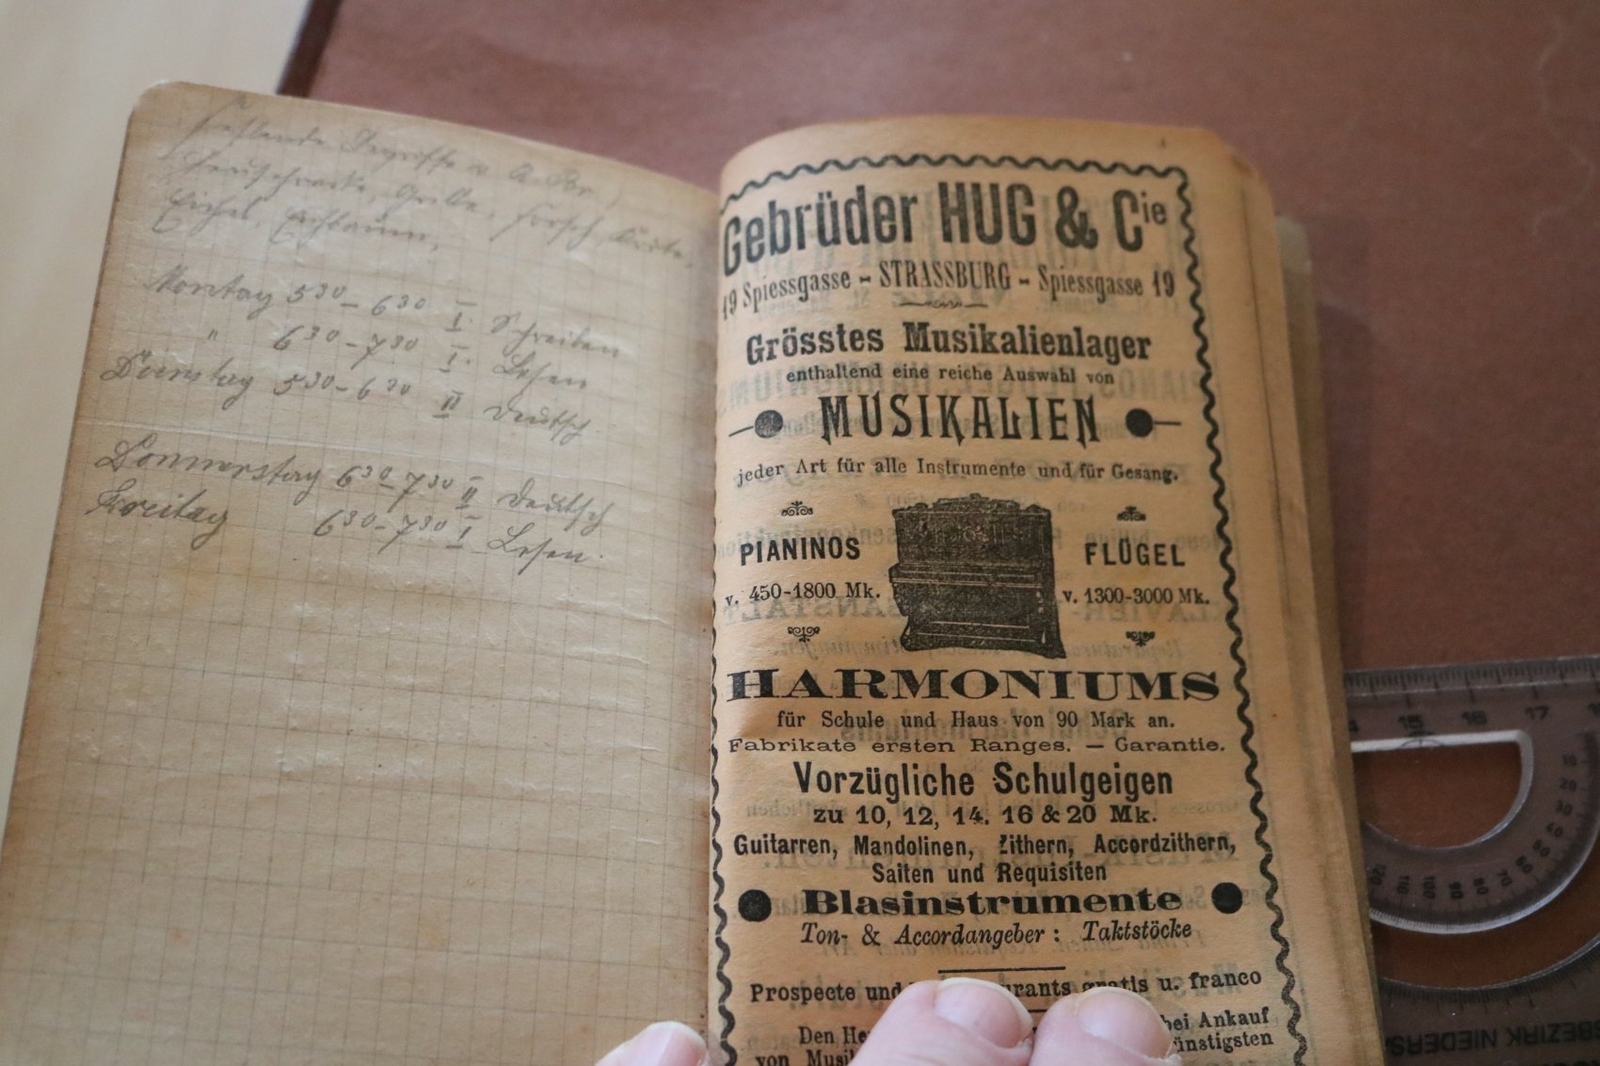 fehlende Begriffe
Heuschrecke, Grille, Frosch, Kröte.
Eichel, Eichbaum,
Montag 5³⁰–6³⁰ I. Schreiben
" 6³⁰–7³⁰ I. Lesen
Dienstag 5³⁰–6³⁰ II Deutsch
Donnerstag 6³⁰–7³⁰ II Deutsch
Freitag 6³⁰–7³⁰ I Lesen.
Gebrüder HUG & Cie
19 Spiessgasse - STRASSBURG - Spiessgasse 19
Grösstes Musikalienlager
enthaltend eine reiche Auswahl von
MUSIKALIEN
jeder Art für alle Instrumente und für Gesang.
PIANINOS
v. 450-1800 Mk.
FLÜGEL
v. 1300-3000 Mk.
HARMONIUMS
für Schule und Haus von 90 Mark an.
Fabrikate ersten Ranges. — Garantie.
Vorzügliche Schulgeigen
zu 10, 12, 14. 16 & 20 Mk.
Guitarren, Mandolinen, Zithern, Accordzithern,
Saiten und Requisiten
Blasinstrumente
Ton- & Accordangeber : Taktstöcke
Prospecte und gratis u. franco
Den bei Ankauf
von
15 16 17
BEZIRK NIEDERS